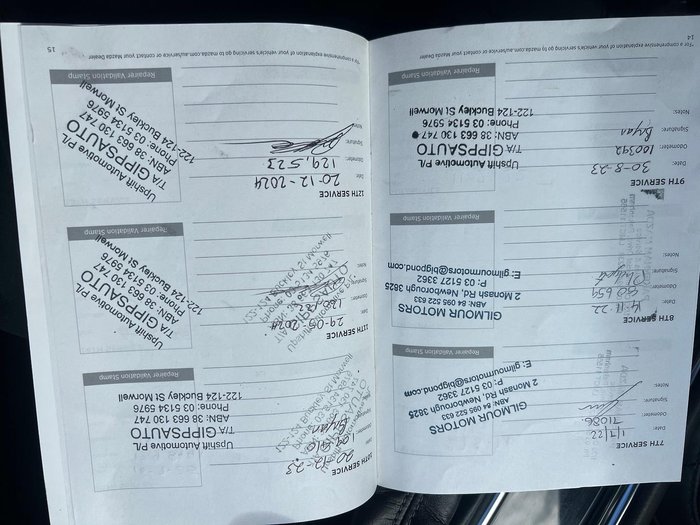 7TH SERVICE
Date: 1/7/22
Odometer: 71086
Signature:
Notes:
GILMOUR MOTORS
ABN 84 095 522 633
2 Monash Rd, Newborough 3825
P: 03 5127 3362
E: gilmourmotors@bigpond.com
8TH SERVICE
Date:
Odometer: 80659
Signature:
Notes:
GILMOUR MOTORS
ABN 84 095 522 633
2 Monash Rd, Newborough 3825
P: 03 5127 3362
E: gilmourmotors@bigpond.com
9TH SERVICE
Date: 30-8-23
Odometer: 100392
Signature: Bryan
Notes:
Upshift Automotive P/L
T/A GIPPSAUTO
ABN: 38 663 130 747
Phone: 03 5134 5976
122-124 Buckley St Morwell
Repairer Validation Stamp
For a comprehensive explanation of your vehicle's servicing go to mazda.com.au/service or contact your Mazda Dealer
14
10TH SERVICE
Date: 20-12-23
Odometer: 109,610
Signature: Bryan
Upshift Automotive P/L
T/A GIPPSAUTO
ABN: 38 663 130 747
Phone: 03 5134 5976
122-124 Buckley St Morwell
Repairer Validation Stamp
11TH SERVICE
Date: 29-05-2024
Odometer:
Signature:
Notes:
Upshift Automotive P/L
T/A GIPPSAUTO
ABN: 38 663 130 747
Phone: 03 5134 5976
122-124 Buckley St Morwell
Repairer Validation Stamp
12TH SERVICE
Date: 20-12-2024
Odometer: 129,523
Signature:
Notes:
Upshift Automotive P/L
T/A GIPPSAUTO
ABN: 38 663 130 747
Phone: 03 5134 5976
122-124 Buckley St Morwell
Repairer Validation Stamp
For a comprehensive explanation of your vehicle's servicing go to mazda.com.au/service or contact your Mazda Dealer
15